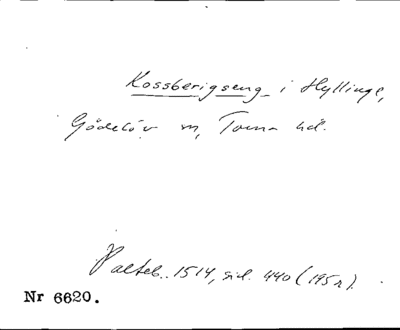 Kossberigseng i Hyllinge,
Gödelöv sn, Torna hd.
Palteb. 1514, sid. 440 (195r).
Nr 6620.